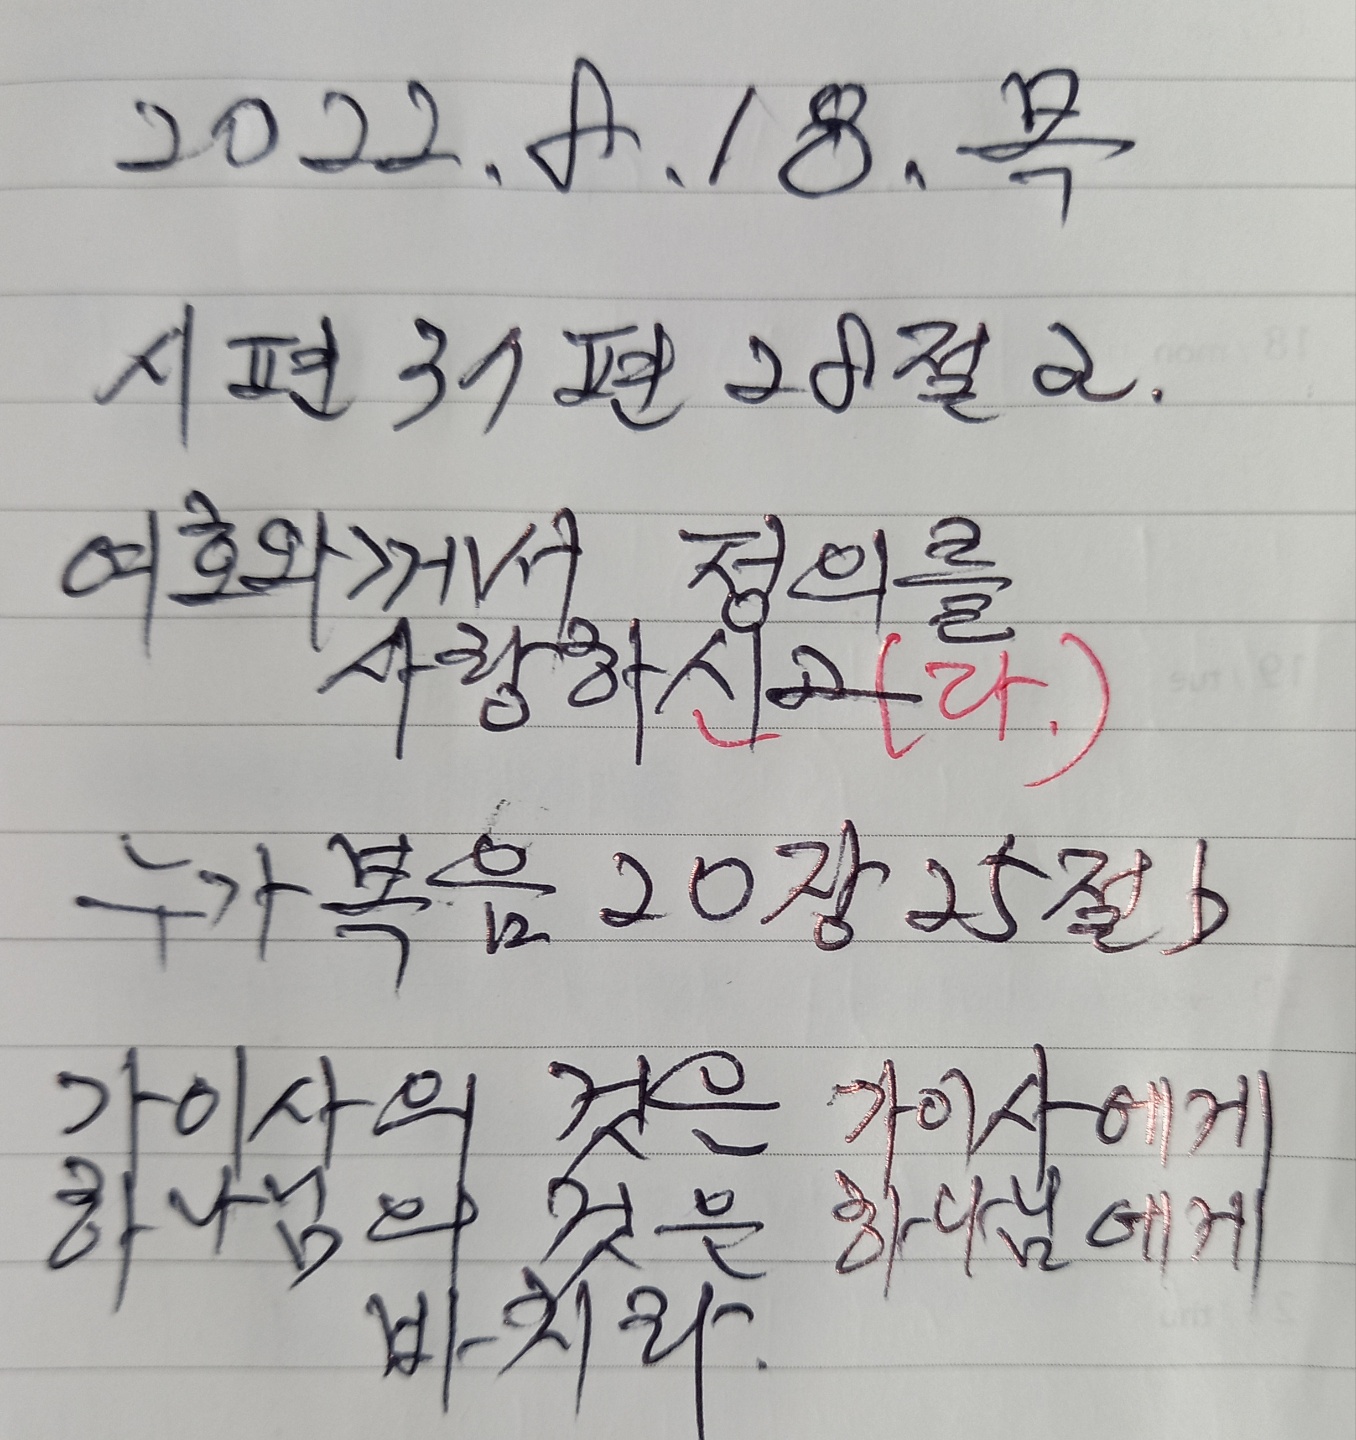 2022. 8. 18. 목
시편 37편 28절 a.
여호와께서 정의를
사랑하신고(다.)
누가복음 20장 25절 b
가이사의 것은 가이사에게
하나님의 것은 하나님에게
바치라.